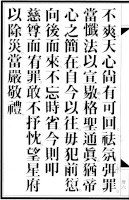 不爽天心尚有可回祛氛弭罪
當懺法以宣敭格聖通眞猶帝
心之簡在自今以往毋犯前愆
向後而來不忘時省今則
慈尊而有罪敢不抒忱望星府
以除災當嚴敬禮